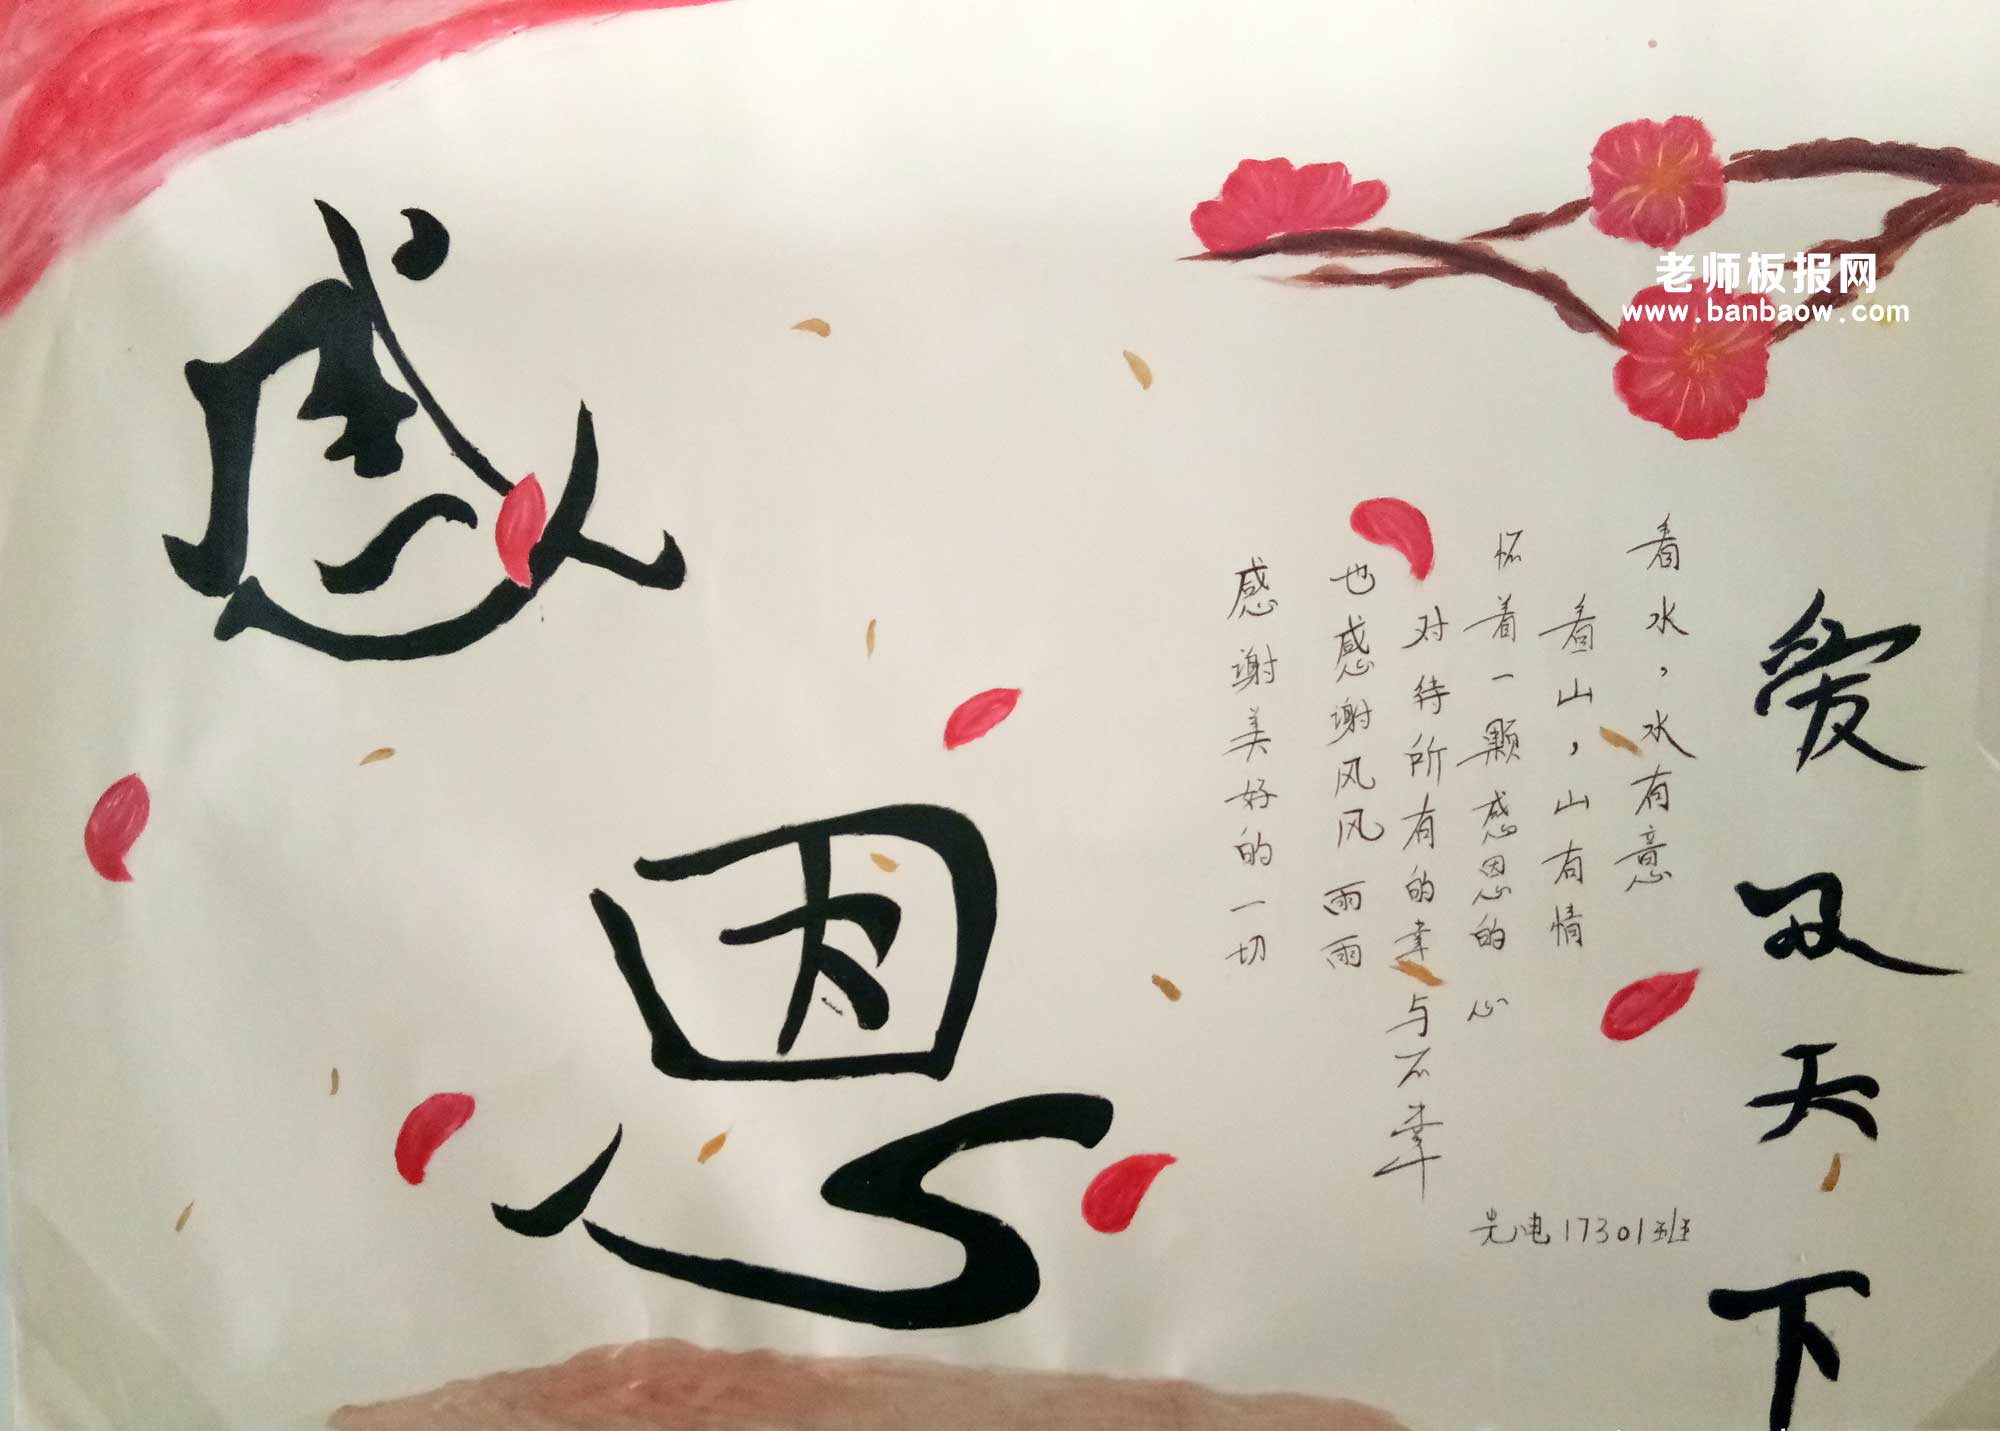 感恩
爱及天下
看水，水有意
看山，山有情
怀着一颗感恩的心
对待所有的幸与不幸
也感谢风风雨雨
感谢美好的一切
光电17301班
老师板报网
www.banbaow.com